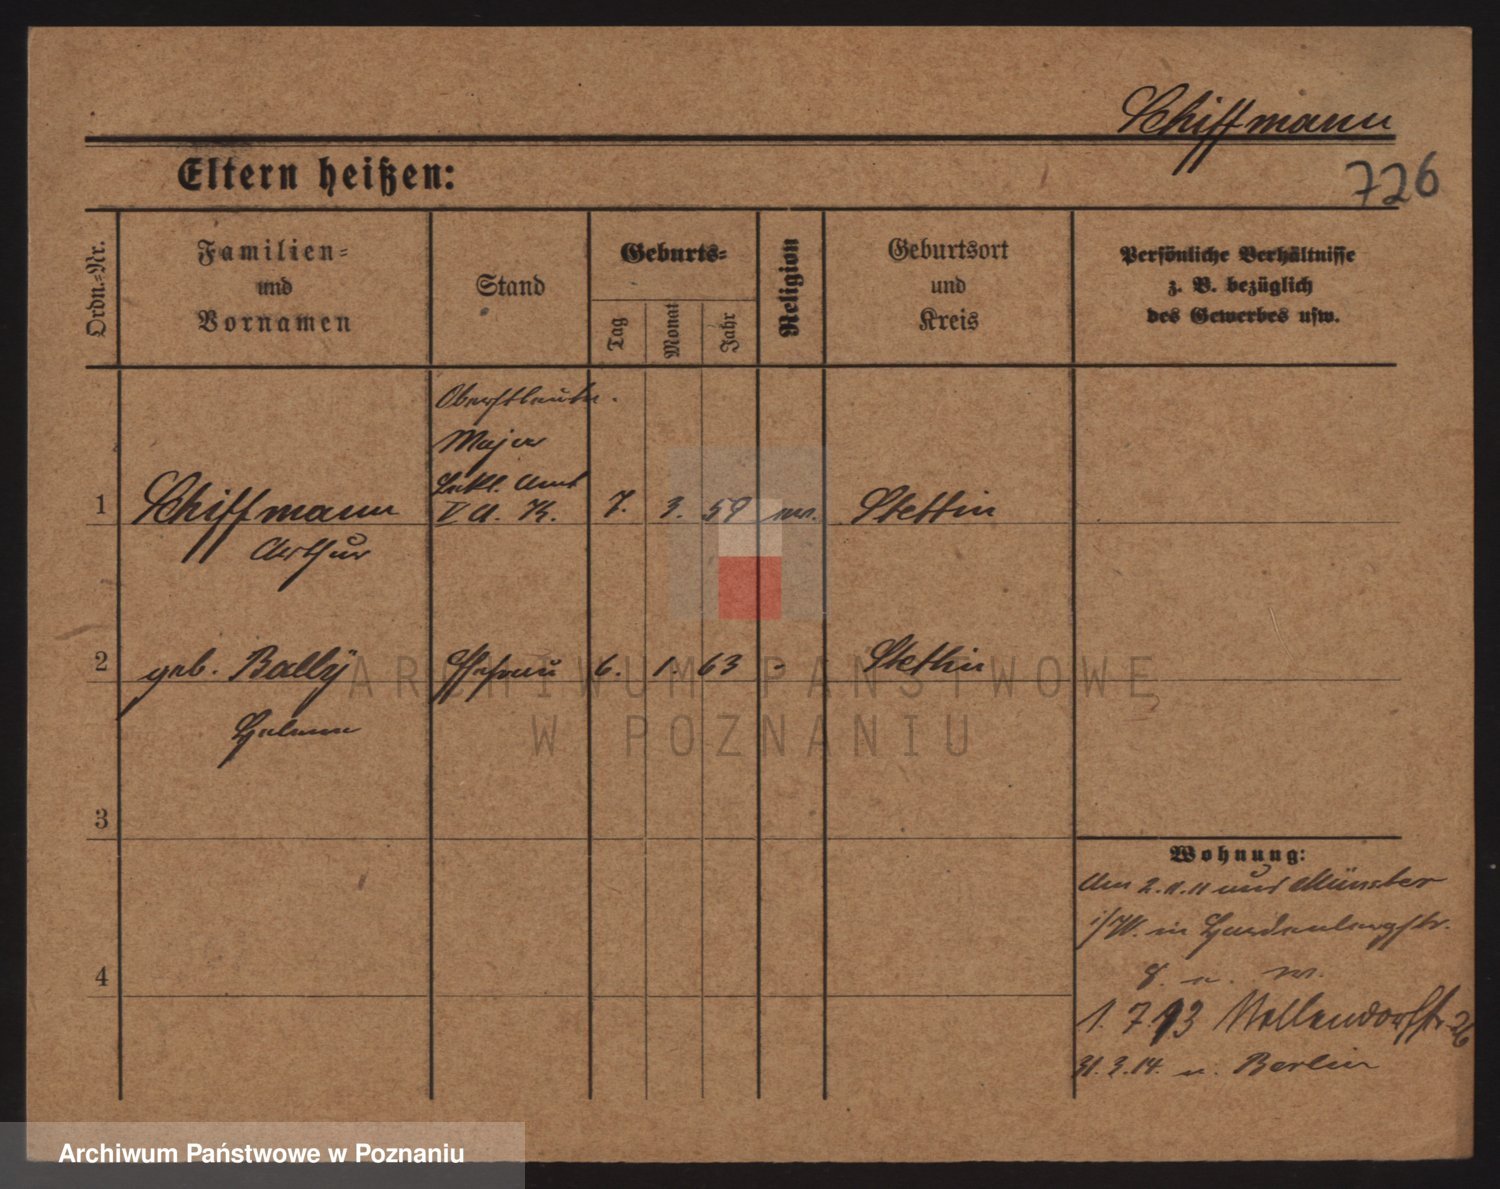 Schiffmann
726
Eltern heißen:
Ordn.-Nr.
Familien- und Vornamen
Stand
Geburts-
Tag
Monat
Jahr
Religion
Geburtsort und Kreis
Persönliche Verhältnisse z. B. bezüglich des Gewerbes usw.
Oberstleutn.
Major
Bekl. Amt
1 Schiffmann V A. K. 7. 3. 59 ev. Stettin
Arthur
2 geb. Bally Ehefrau 6. 1. 63 - Stettin
Helene
3
4
Wohnung:
Am 2.11.11 aus Münster
i/W. in Hardenbergstr.
8. u. w.
1. 7 13 Nollendorfstr 26
31.3.14. n. Berlin
ARCHIWUM PAŃSTWOWE
W POZNANIU
Archiwum Państwowe w Poznaniu